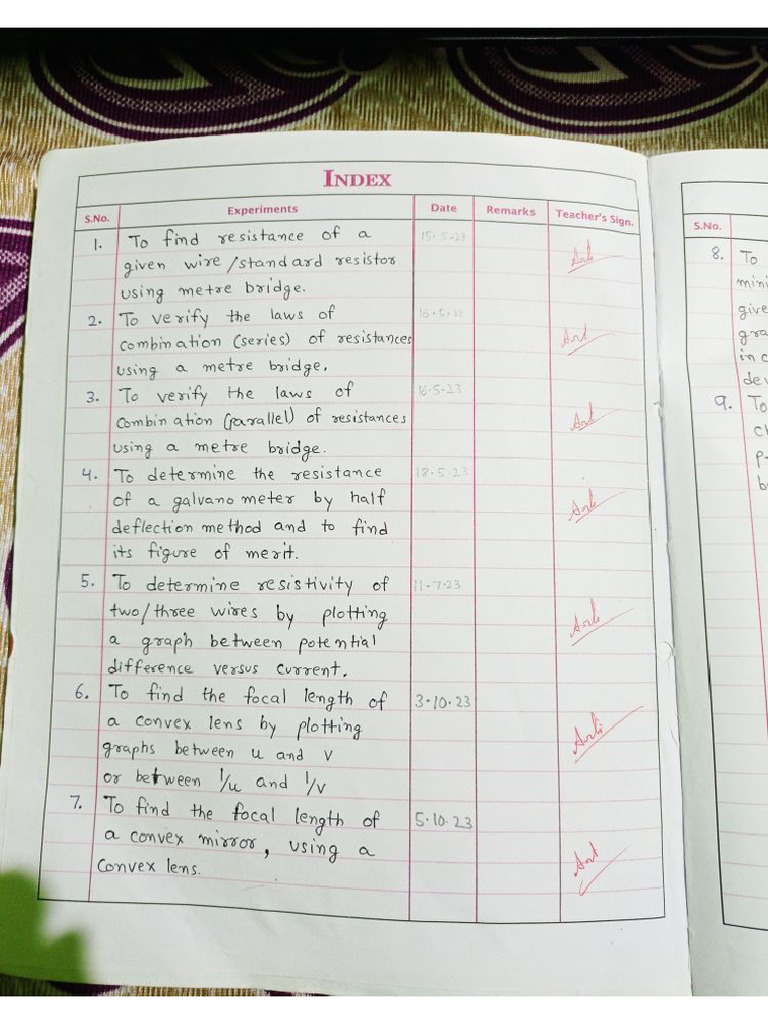 INDEX
S.No. Experiments Date Remarks Teacher's Sign.
1. To find resistance of a 15-5-23
given wire/standard resistor
using metre bridge.
2. To verify the laws of 16-5-23
combination (series) of resistances
using a metre bridge.
3. To verify the laws of 16-5-23
combination (parallel) of resistances
using a metre bridge.
4. To determine the resistance 18-5-23
of a galvanometer by half
deflection method and to find
its figure of merit.
5. To determine resistivity of 11-7-23
two/three wires by plotting
a graph between potential
difference versus current.
6. To find the focal length of 3-10-23
a convex lens by plotting
graphs between u and v
or between 1/u and 1/v
7. To find the focal length of 5-10-23
a convex mirror, using a
convex lens.
S.No.
8. To
mini
give
gra
in c
dev
9. To
ch
p-
b